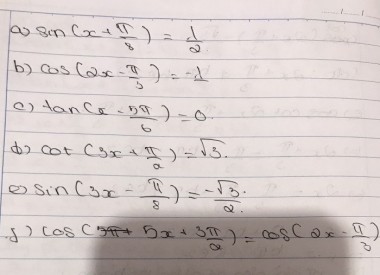 a) sin(x + π/8) = 1/2
b) cos(2x - π/3) = -1
c) tan(x - 5π/6) = 0
d) cot(3x + π/2) = √3.
e) sin(3x - π/8) = -√3/2.
f) cos(5x + 3π/2) = cos(2x - π/3)